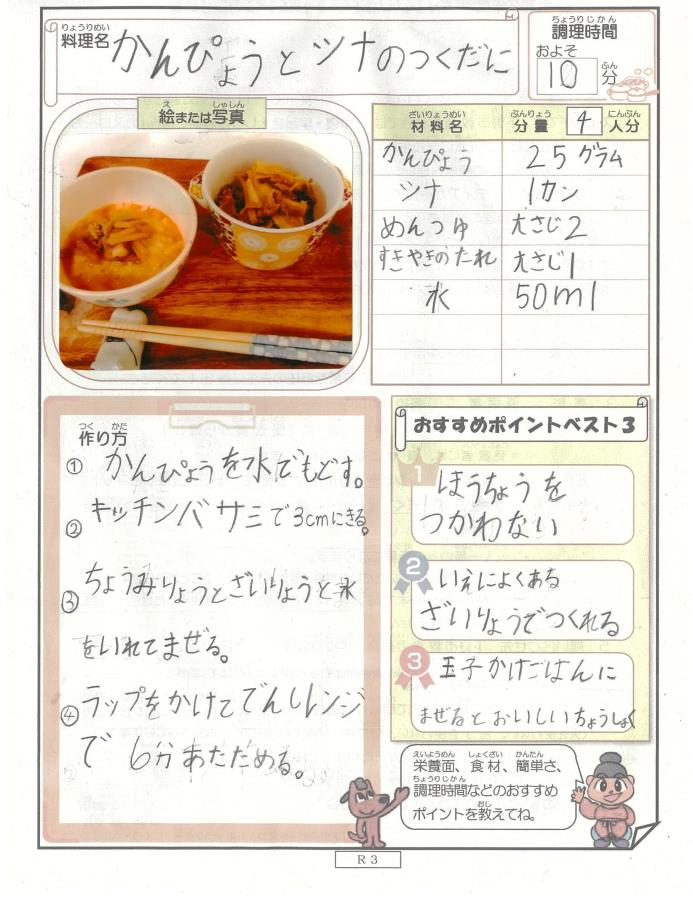 りょうりめい
料理名 かんぴょうとツナのつくだに
ちょうりじかん
調理時間
およそ
10 分
ぷん
え しゃしん
絵または写真
ざいりょうめい ぶんりょう にんぶん
材料名 分量 4 人分
かんぴょう 25グラム
ツナ 1カン
めんつゆ 大さじ2
すきやきのたれ 大さじ1
水 50ml
つく かた
作り方
① かんぴょうを水でもどす。
② キッチンバサミで3cmにきる。
③ ちょうみりょうとざいりょうと水
をいれてまぜる。
④ ラップをかけてでんしレンジ
で 6分あたためる。
おすすめポイントベスト3
1 ほうちょうを
つかわない
2 いえによくある
ざいりょうでつくれる
3 玉子かけごはんに
まぜるとおいしいちょうしょく
えいようめん しょくざい かんたん
栄養面、食材、簡単さ、
ちょうりじかん
調理時間などのおすすめ
おし
ポイントを教えてね。
R3